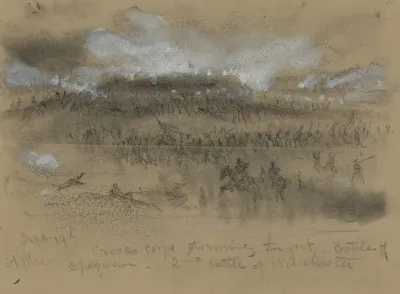 Sept 19th
Crooks corps storming the fort. Battle of
Opequan. 2nd battle of Winchester